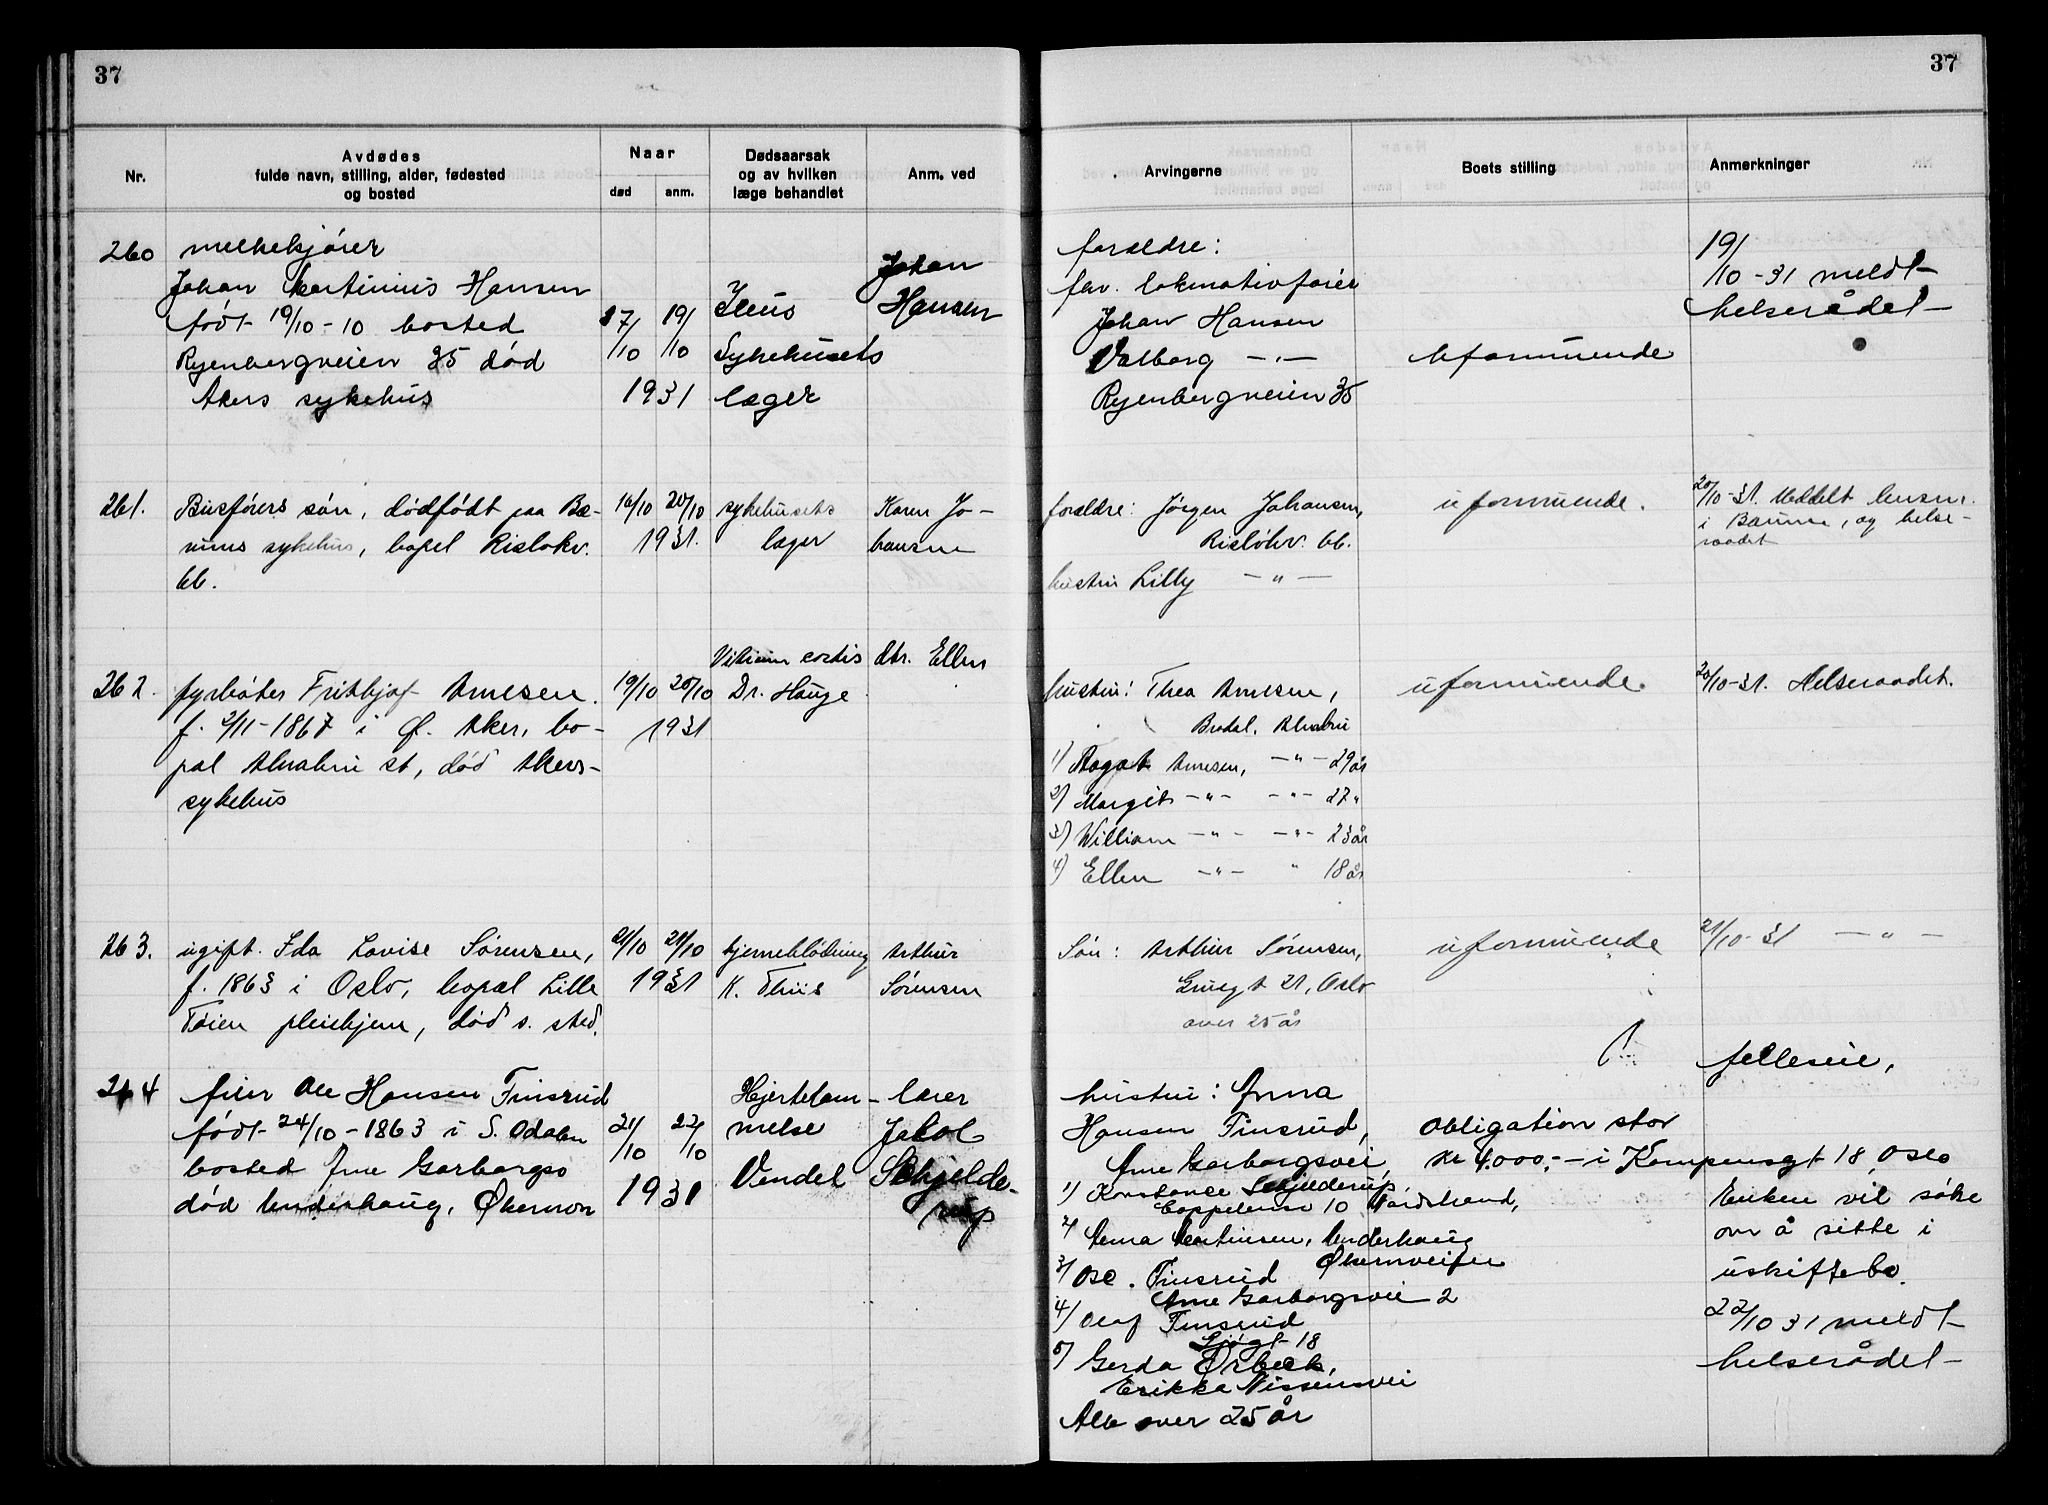 37
37
Nr.
Avdødes
fulde navn, stilling, alder, fødested
og bosted
Naar
død
anm.
Dødsaarsak
og av hvilken
læge behandlet
Anm. ved
Arvingerne
Boets stilling
Anmerkninger
260
melkekjører
Johan Martinius Hansen
født 19/10-10 bosted
Ryenbergveien 35 død
Akers sykehus
17/10 19/10
1931
Ileus
Sykehusets
læger
Johan
Hansen
foreldre:
fhv. lokomotivfører
Johan Hansen
Valborg -"-
Ryenbergveien 35
Uformuende
19/10-31 meldt
helserådet
261.
Busførers søn, dødfødt paa Bæ-
rums sykehus, bopel Risløkv.
66.
16/10 20/10
1931.
sykehusets
læger
Karen Jo-
hansen
foreldre: Jørgen Johansen,
Risløkv. 66.
hustru Lilly -"-
uformuende.
20/10-31. Meddelt lensm.
i Bærum, og helse-
raadet
262.
fyrbøter Frithjof Arnesen.
f. 2/11-1867 i Ø. Aker, bo-
pæl Alnabru st, død Akers-
sykehus
19/10 20/10
1931
Vitium cordis
Dr. Hauge
dtr. Ellen
hustru: Thea Arnesen,
Bredal. Alnabru
1) Aagot Arnesen, -"- 29 år
2) Margit -"- -"- 27 "
3) William -"- -"- 23 år
4) Ellen -"- " 18 år
uformuende
20/10-31. Helseraadet.
263.
ugift. Ida Lovise Sørensen,
f. 1863 i Oslo, bopæl Lille
Tøien pleiehjem, død s. sted.
21/10 21/10
1931
hjerneblødning
K. Thiis
Arthur
Sørensen
Søn: Arthur Sørensen,
21, Oslo
over 25 år
uformuende
21/10-31 -"-
264
feier Ole Hansen Finsrud
født 24/10-1863 i S. Odalen
bosted Arne Garborgs
død Underhaug, Økernvn
21/10 22/10
1931
Hjertelam-
melse
Vendel
lærer
Jakob
Schjelde-
rup
hustru: Anna
Hansen Finsrud,
Arne Garborgsvei,
1) Konstance Schjelderup
Cappelensv 10 Nordstrand,
2) Anna Martinsen, Underhaug
Økernveien
3) Ole. Finsrud
Arne Garborgsvei 2
4) Olaf Finsrud
18
5) Gerda Ørbeck,
Erikka Nissensvei
Alle over 25 år
Obligation stor
kr 4.000,- i Kampensgt 18, Oslo
felleseie,
Enken vil søke
om å sitte i
uskiftebo.
22/10 31 meldt
helserådet